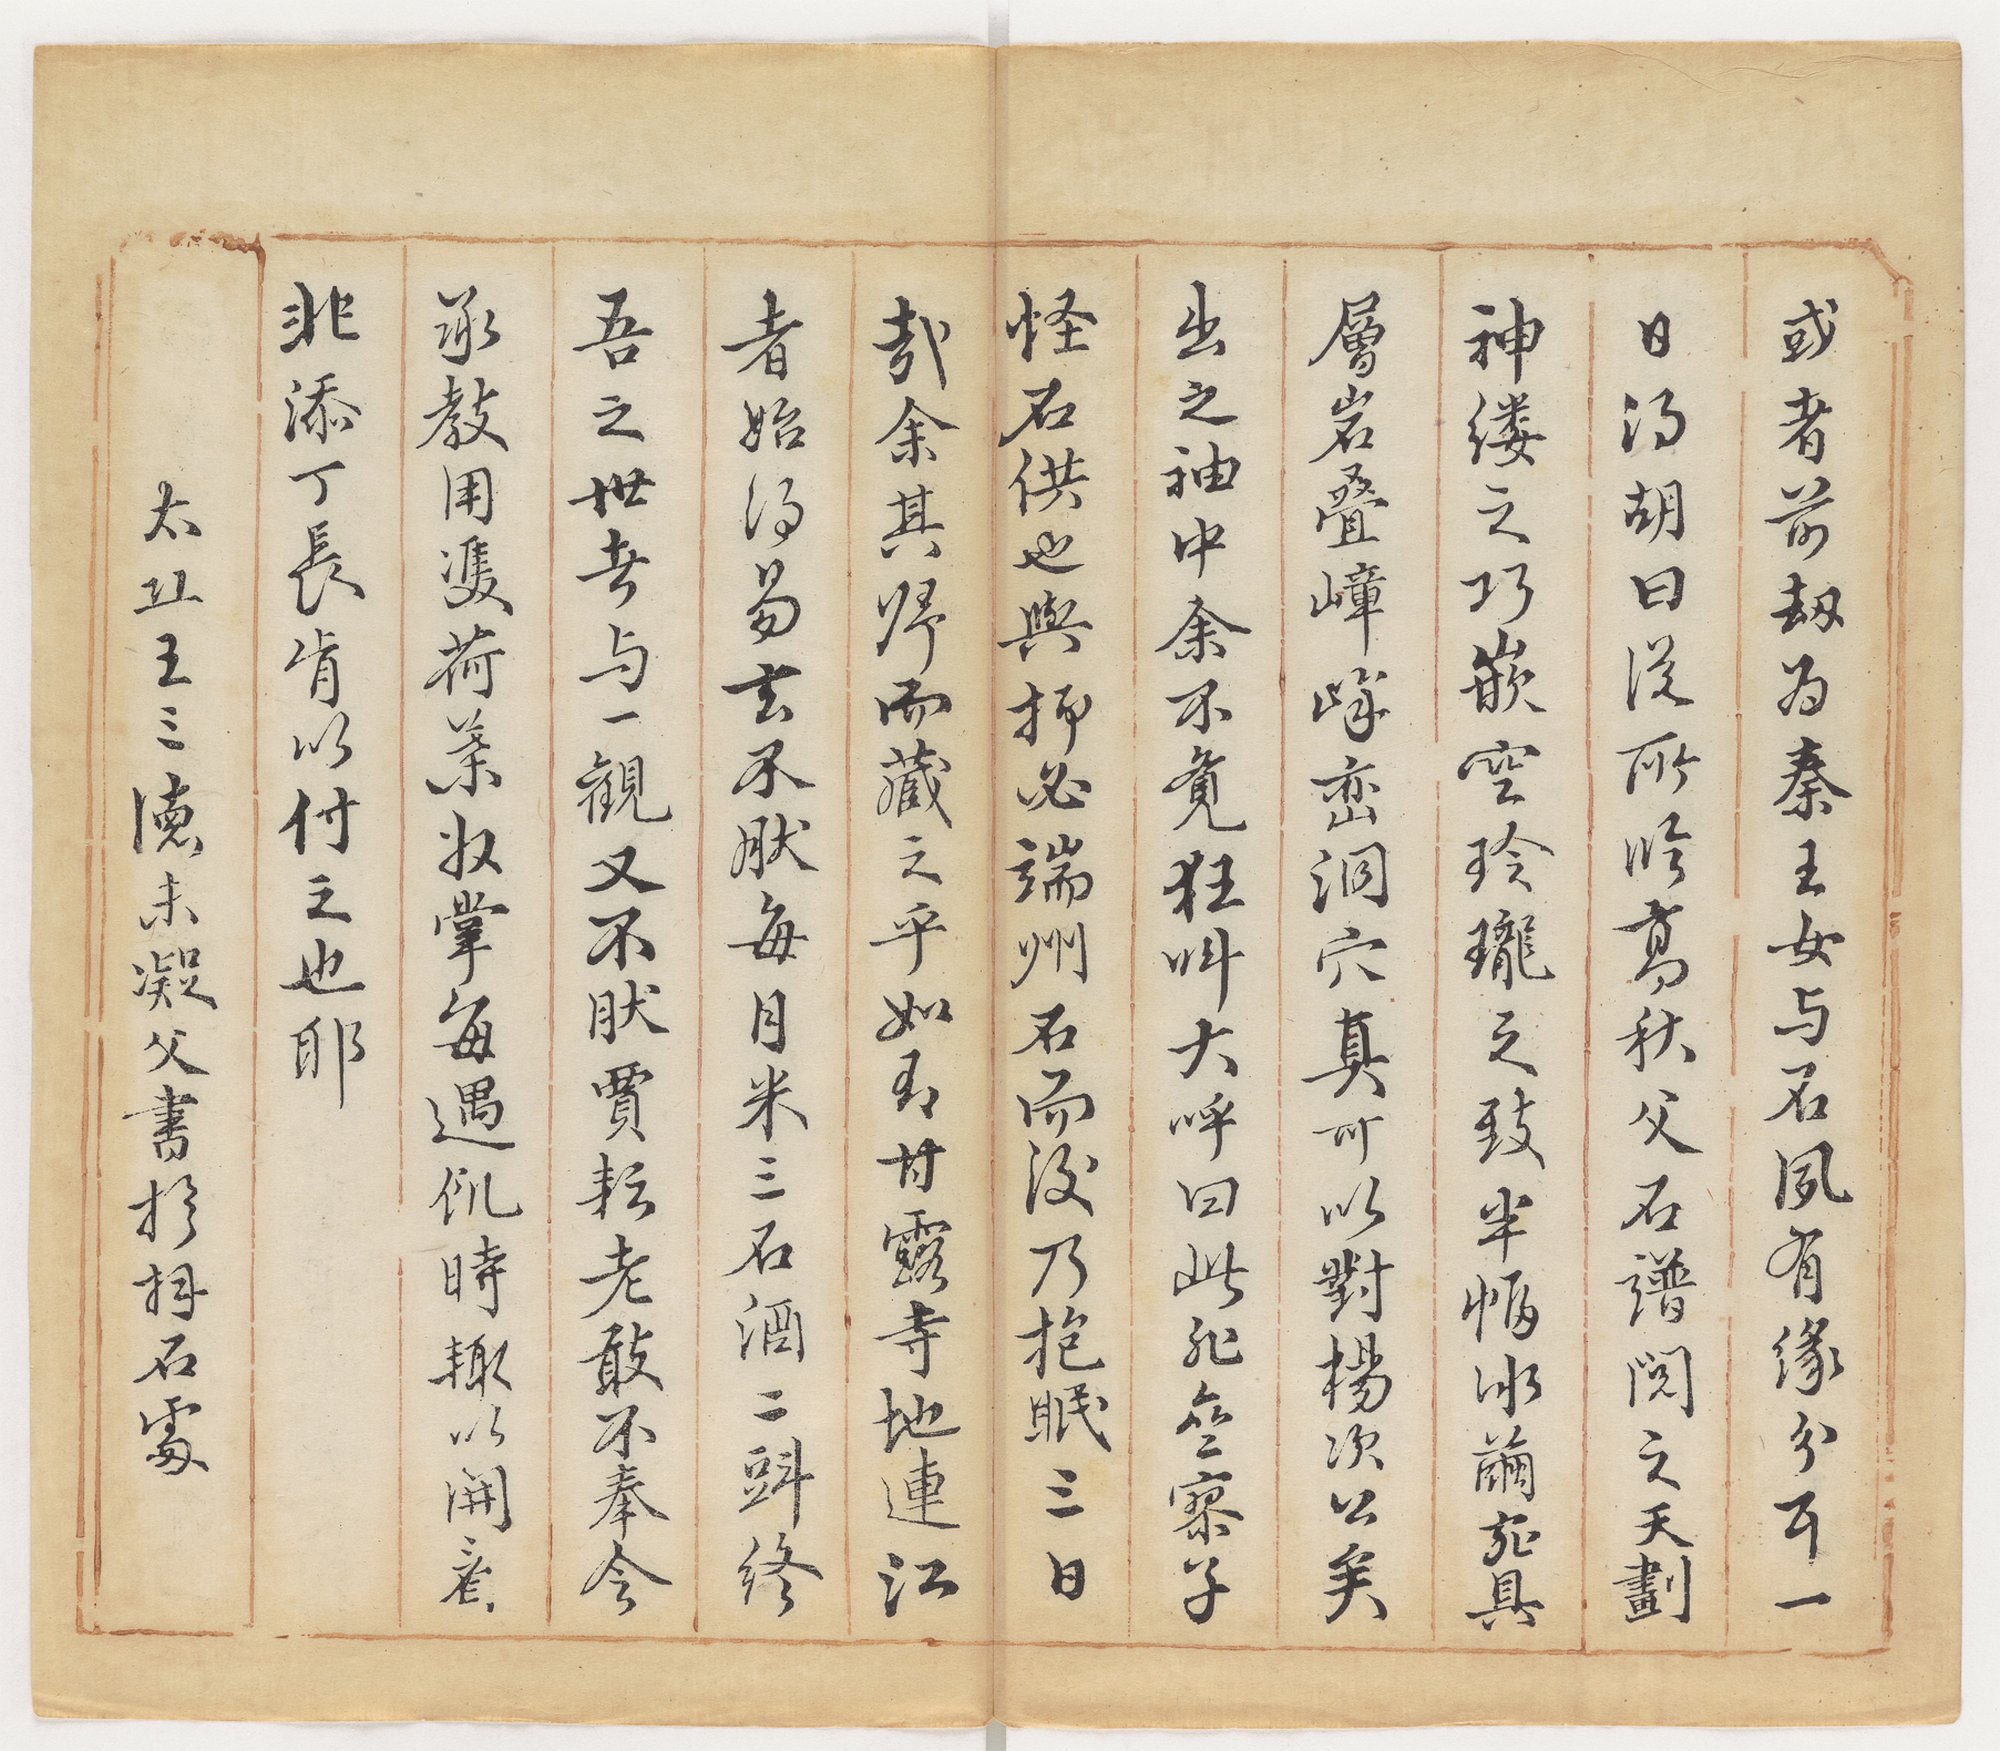 或者前劫為秦王女与石夙有緣分耳一
日得胡曰從所吟葛秋父石譜閱之天劃
神縷之巧嵌空玲瓏之致半幅冰繭宛具
層岩叠嶂峰巒洞穴真可以對楊次公矣
出之袖中余不覓狂叫大呼曰此非參寥子
怪石供也與抑必端州石而後乃抱眠三日
哉余其歸而藏之乎如有甘露寺地連江
者始得易去不肰每月米三石酒二斟終
吾之世去与一觀又不肰賈耘老敢不奉令
承教用雙荷葉収掌每遇飢時輙以開看
非添丁長肯以付之也耶
太丘王三德未凝父書於拜石處